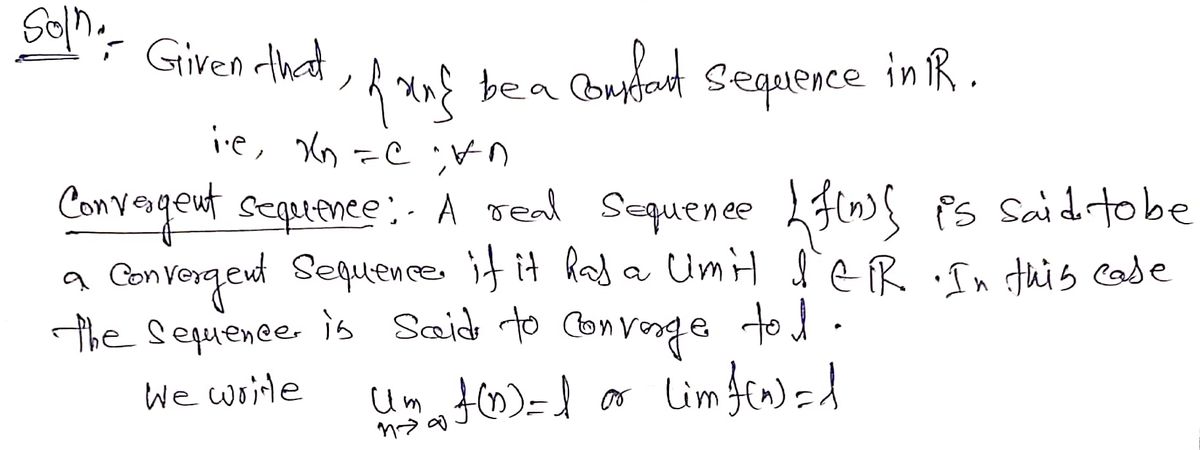 Soln:- Given that, {xn} be a Constant sequence in ℝ.
i.e, xn = c ; ∀ n
Convergent sequence:- A real Sequence {f(n)} is said to be
a Convergent Sequence if it has a limit l ∈ ℝ. In this case
the sequence is said to Converge to l.
We write lim n→∞ f(n) = l or lim f(n) = l